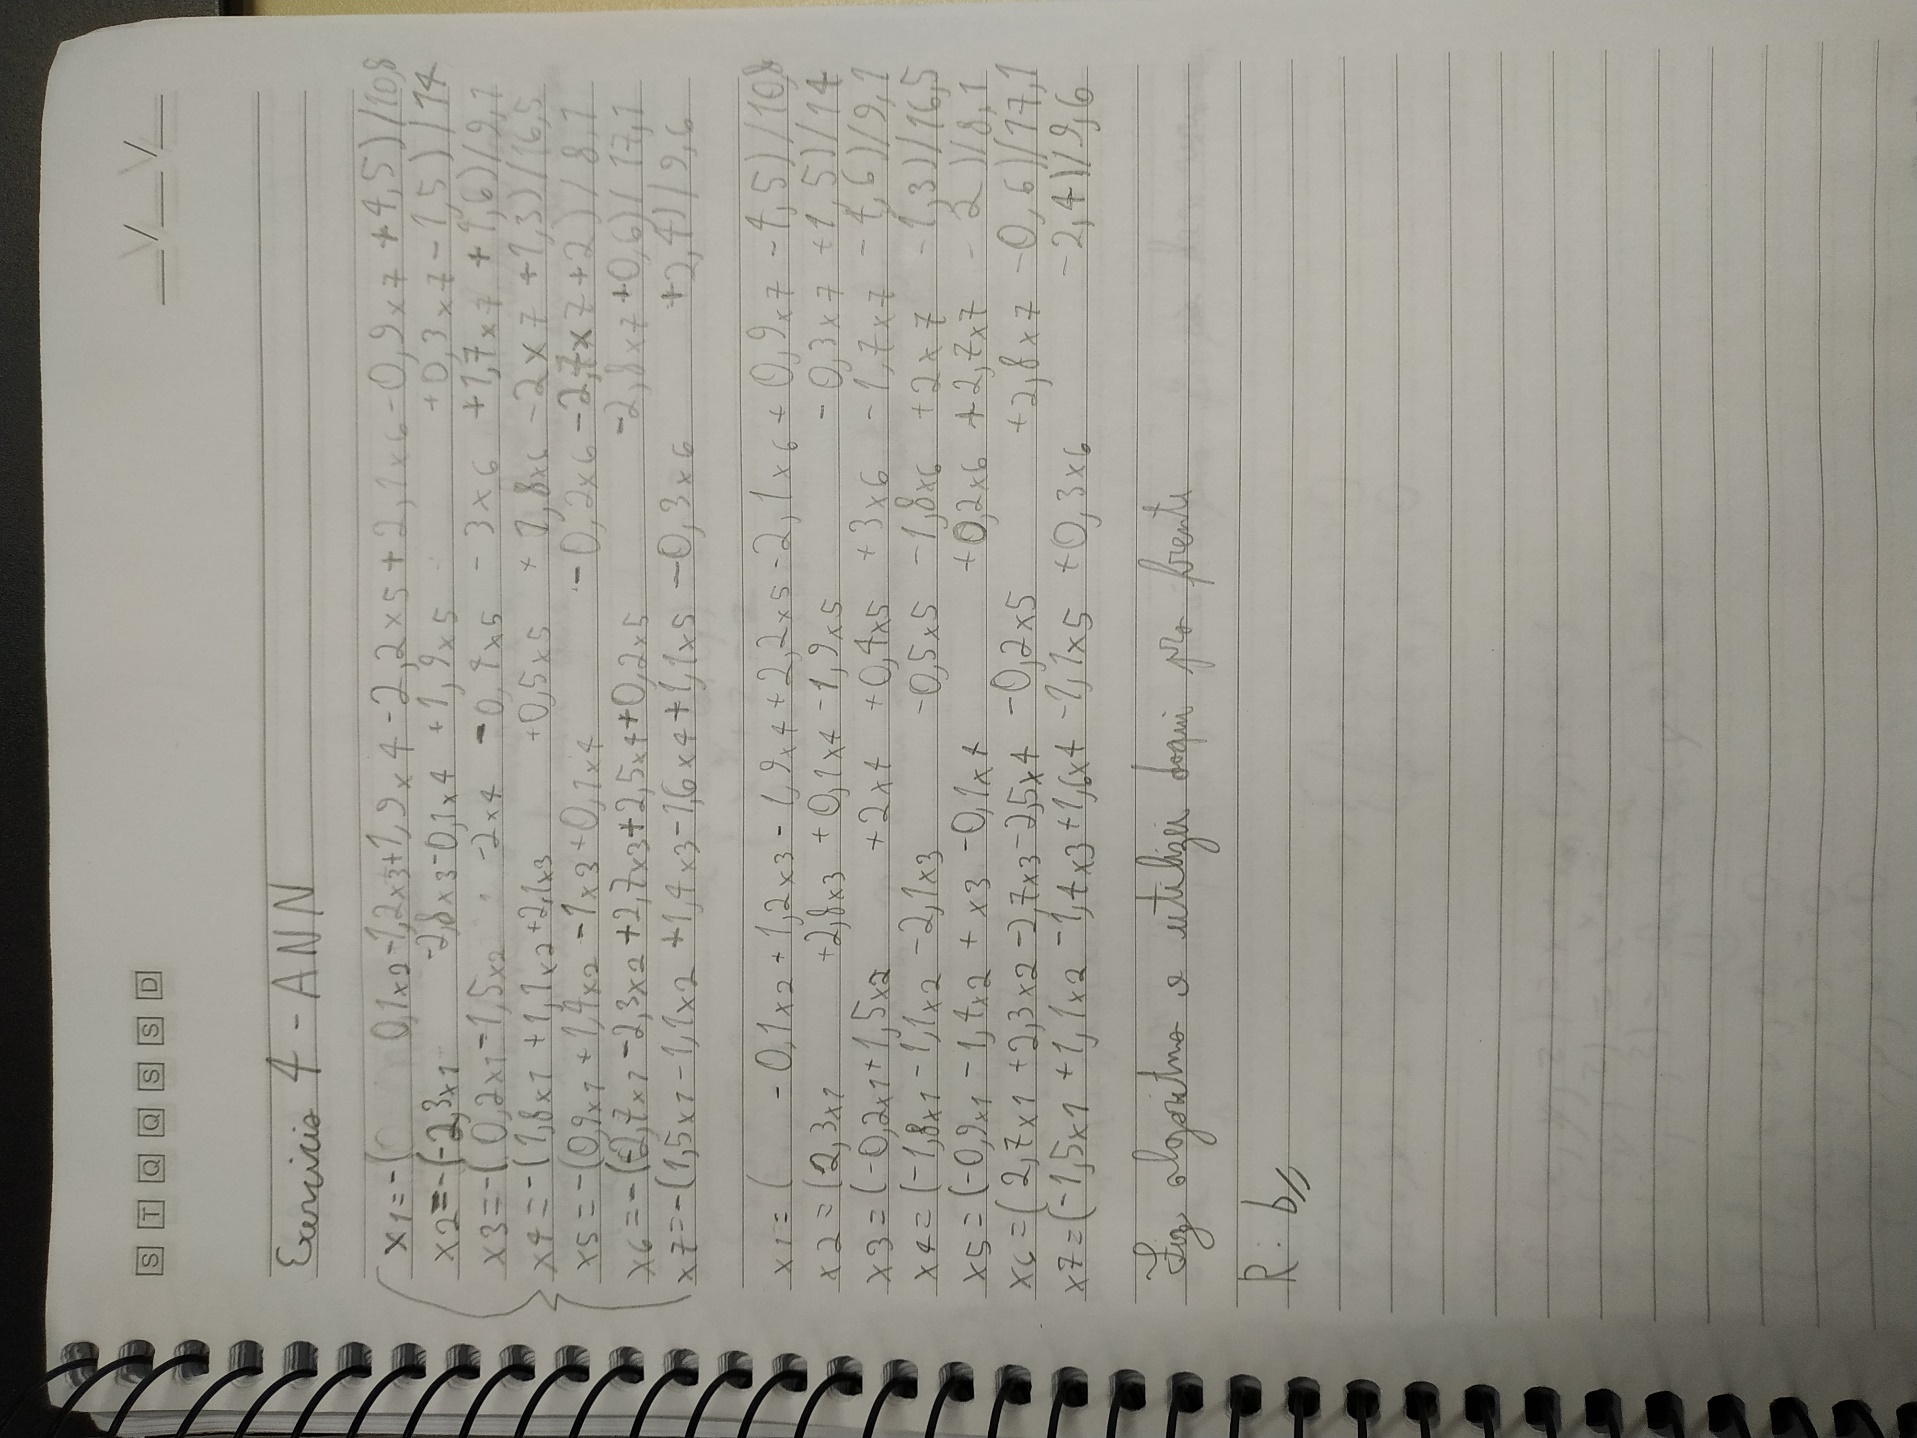 S T Q Q S S D
__/__/__
Exercício 4 - ANN
x1=-( 0,1x2-1,2x3+1,9x4-2,2x5+2,1x6-0,9x7+4,5)/10,8
x2=-(-2,3x1 -2,8x3-0,1x4 +1,9x5 +0,3x7-1,5)/14
x3=-(0,2x1-1,5x2 -2x4 -0,4x5 -3x6 +1,7x7+4,6)/9,1
x4=-(1,8x1+1,1x2+2,1x3 +0,5x5 +1,8x6-2x7+1,3)/16,5
x5=-(0,9x1+1,4x2-1x3+0,1x4 -0,2x6-2,7x7+2)/8,1
x6=-(-2,7x1-2,3x2+2,7x3+2,5x4+0,2x5 -2,8x7+0,6)/17,1
x7=-(1,5x1-1,1x2+1,4x3-1,6x4+1,1x5-0,3x6 +2,4)/9,6
x1=( -0,1x2+1,2x3-1,9x4+2,2x5-2,1x6+0,9x7-4,5)/10,8
x2=(2,3x1 +2,8x3+0,1x4-1,9x5 -0,3x7+1,5)/14
x3=(-0,2x1+1,5x2 +2x4 +0,4x5 +3x6 -1,7x7-4,6)/9,1
x4=(-1,8x1-1,1x2-2,1x3 -0,5x5-1,8x6 +2x7 -1,3)/16,5
x5=(-0,9x1-1,4x2+x3-0,1x4 +0,2x6+2,7x7 -2)/8,1
x6=(2,7x1+2,3x2-2,7x3-2,5x4 -0,2x5 +2,8x7-0,6)/17,1
x7=(-1,5x1+1,1x2-1,4x3+1,6x4-1,1x5+0,3x6 -2,4)/9,6
Fiz algoritmo e utilizei daqui pra frente
R: b//